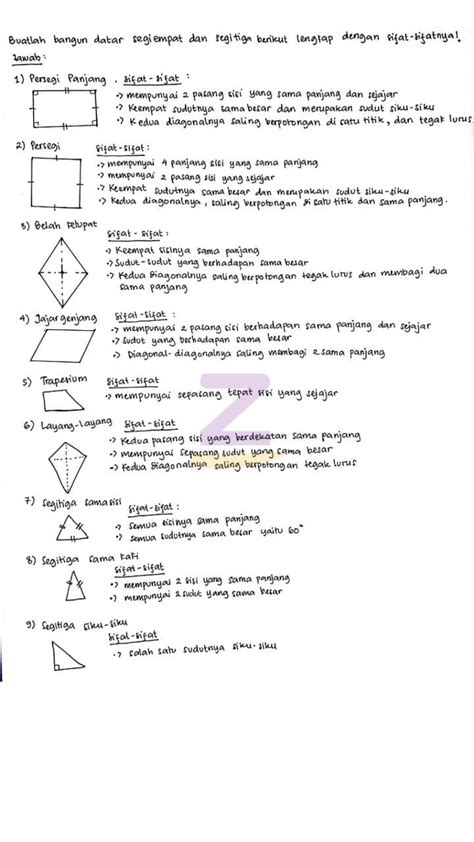 Buatlah bangun datar segiempat dan segitiga berikut lengkap dengan sifat-sifatnya!
Jawab:
1) Persegi Panjang . Sifat-sifat :
-> mempunyai 2 pasang sisi yang sama panjang dan sejajar
-> Keempat sudutnya sama besar dan merupakan sudut siku-siku
-> Kedua diagonalnya saling berpotongan di satu titik, dan tegak lurus
2) Persegi
Sifat-sifat:
-> mempunyai 4 panjang sisi yang sama panjang
-> mempunyai 2 pasang sisi yang sejajar
-> Keempat sudutnya sama besar dan merupakan sudut siku-siku
-> Kedua diagonalnya, saling berpotongan di satu titik dan sama panjang.
3) Belah Ketupat
Sifat-sifat:
-> Keempat sisinya sama panjang
-> Sudut-sudut yang berhadapan sama besar
-> Kedua diagonalnya saling berpotongan tegak lurus dan membagi dua
sama panjang
4) Jajar genjang
Sifat-sifat:
-> mempunyai 2 pasang sisi berhadapan sama panjang dan sejajar
-> Sudut yang berhadapan sama besar
-> Diagonal-diagonalnya saling membagi 2 sama panjang
5) Trapesium
Sifat-sifat
-> mempunyai sepasang tepat sisi yang sejajar
Z
6) Layang-layang
Sifat-sifat
-> Kedua pasang sisi yang berdekatan sama panjang
-> mempunyai sepasang sudut yang sama besar
-> Kedua diagonalnya saling berpotongan tegak lurus
7) Segitiga sama sisi
Sifat-sifat:
-> Semua sisinya sama panjang
-> semua sudutnya sama besar yaitu 60°
8) Segitiga sama kaki
Sifat-sifat
-> mempunyai 2 sisi yang sama panjang
-> mempunyai 2 sudut yang sama besar
9) Segitiga siku-siku
Sifat-sifat
-> salah satu sudutnya siku-siku